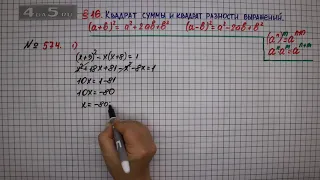 4 për 5 um
§ 16. Квадрат суммы и квадрат разности выражений.
(a+b)² = a²+2ab+b² (a-b)² = a²-2ab+b²
(aⁿ)ᵐ = aⁿᵐ
aⁿaᵐ = aⁿ⁺ᵐ
№ 574. 1)
(x+9)² - x(x+8) = 1
x² + 18x + 81 - x² - 8x = 1
10x = 1-81
10x = -80
x = -80